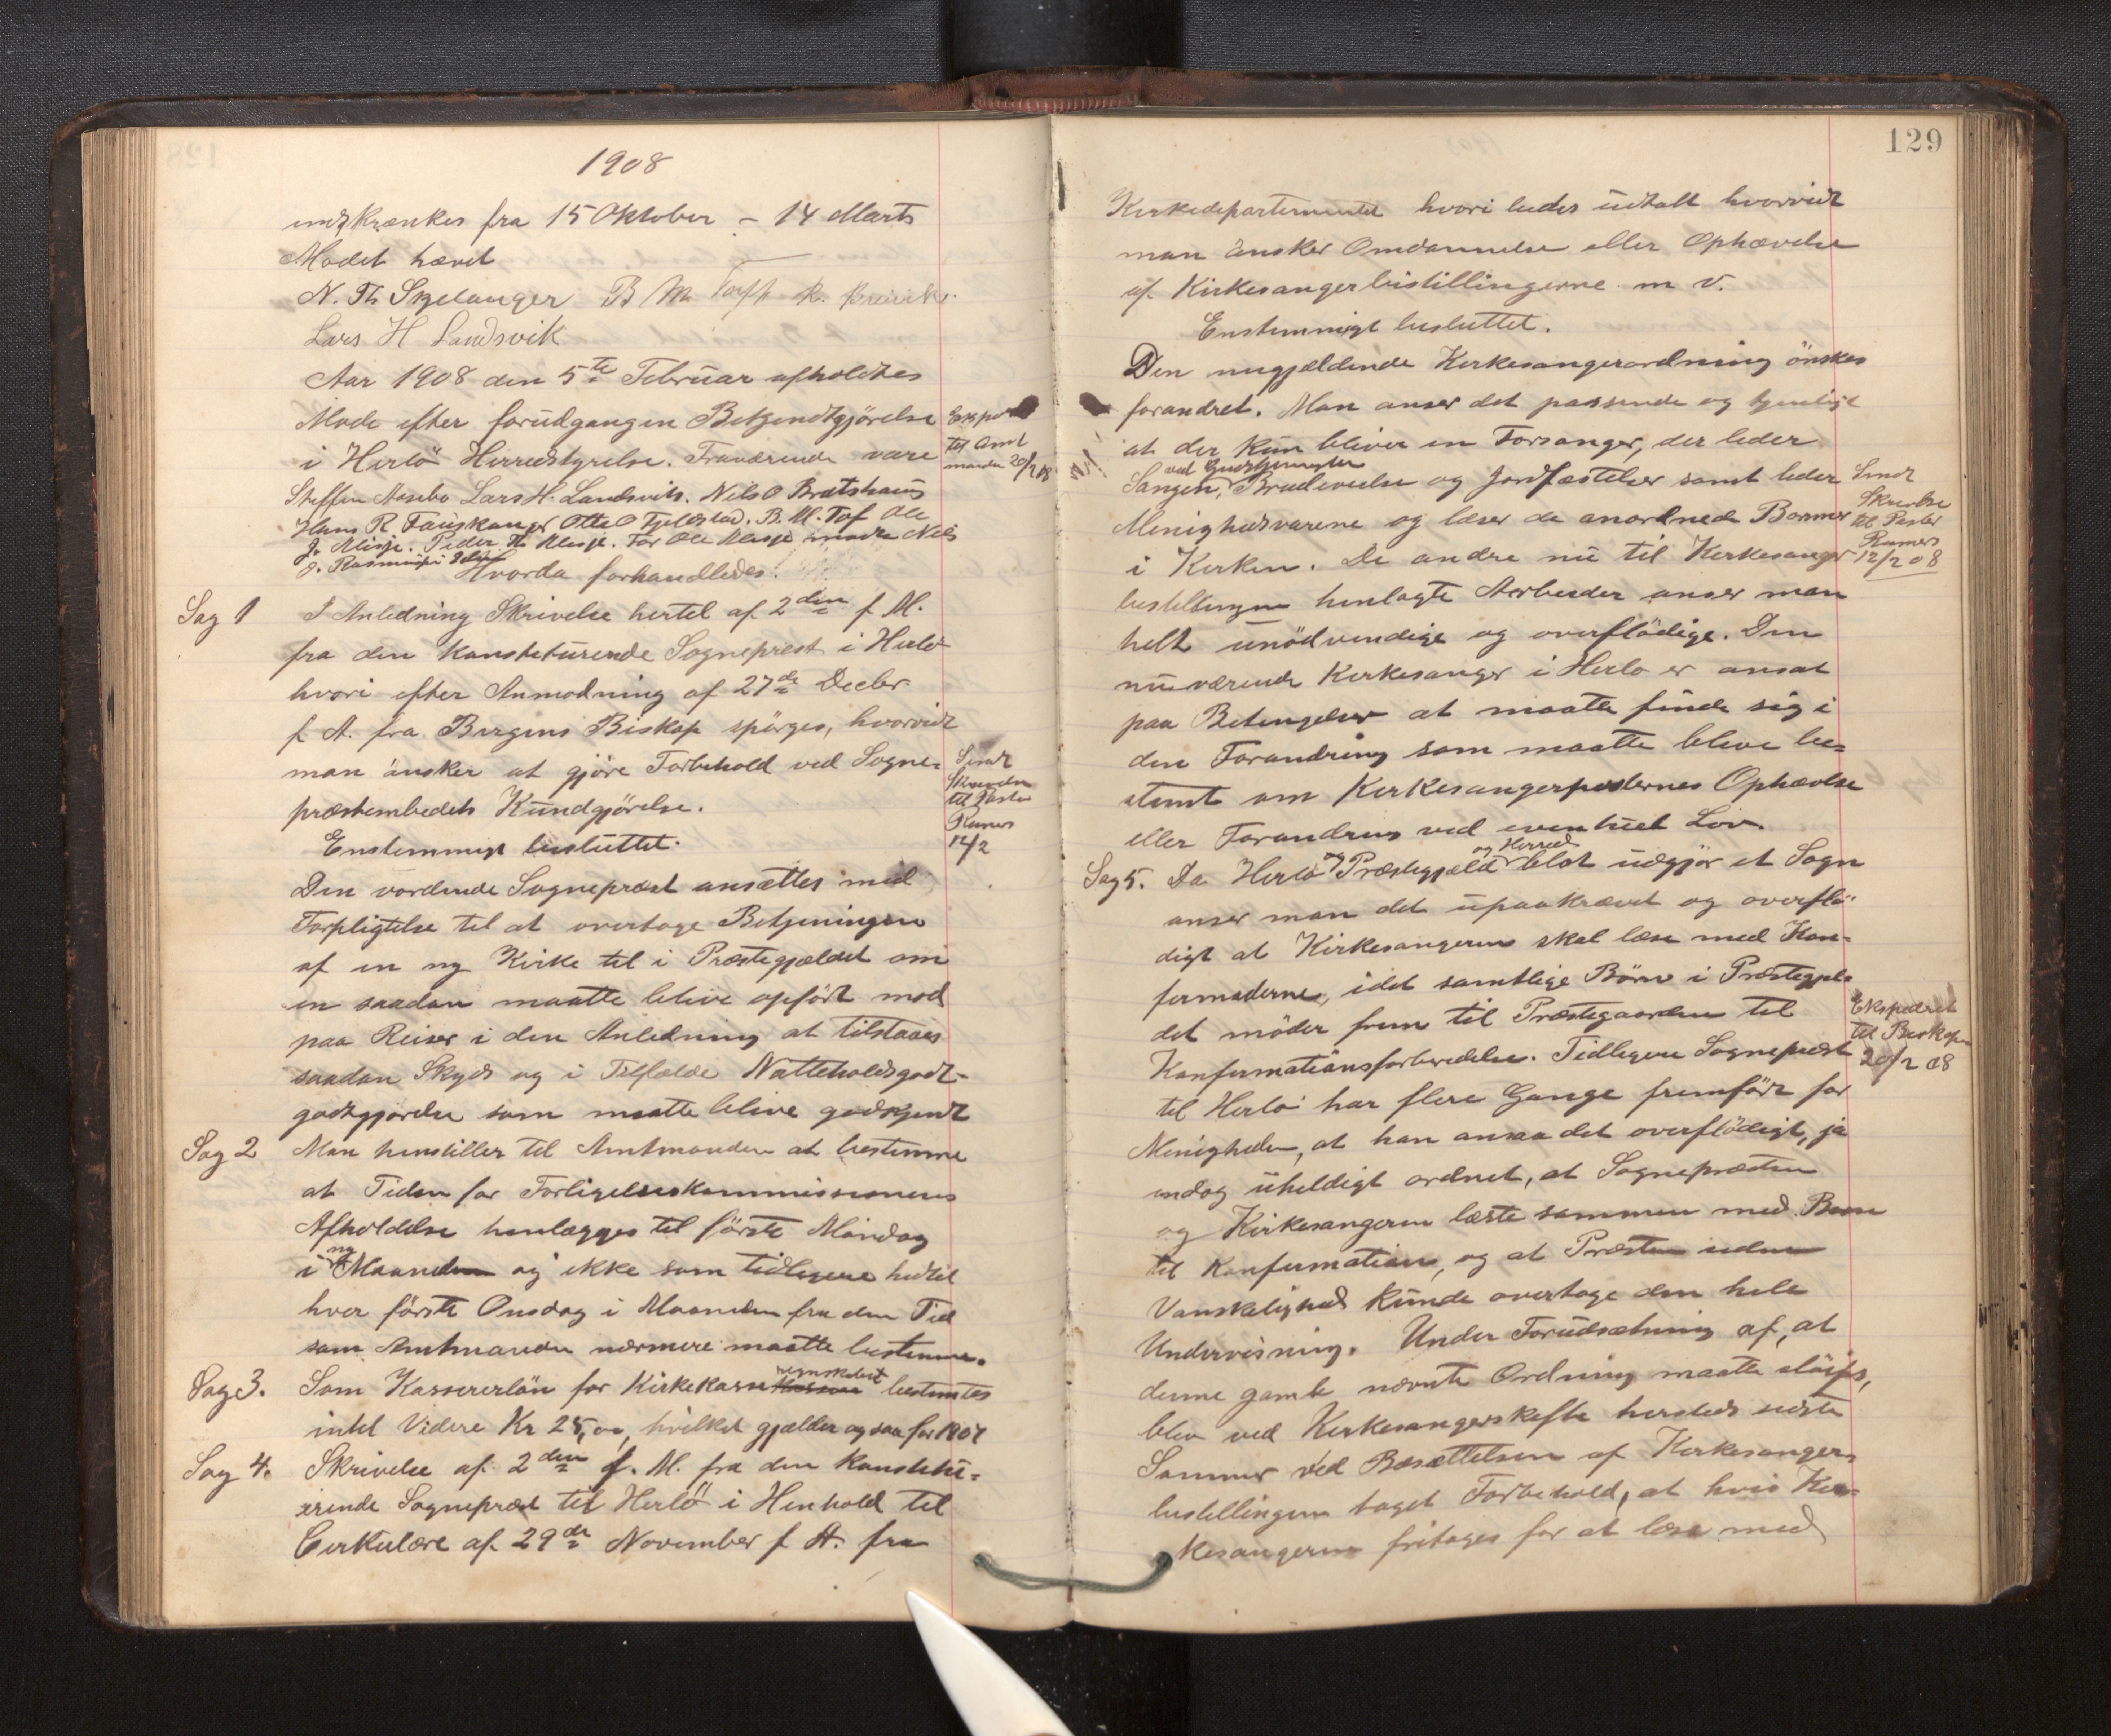 1908
indskrænkes fra 15 Oktober - 14 Marts
Mødet hævet
N. Th Skjelanger B M Toft R.
Lars H Landsvik
Aar 1908 den 5te Februar afholdtes
Møde efter forudgangen Bekjendtgjörelse
i Herlö Herredstyrelse. Fraværende vare
Expd
til Amt
manden 20/2 08
Steffen Aasebø Lars H. Landsvik. Nils O Bratshaug
Hans R Fauskanger Otte O Fjeldstad. B. M. Tof Ole
J. Misje. Peder Th Misje. For Ole Misje mødte Nils
J. Rasmussen
Hvorda forhandledes:
Sag 1 I Anledning Skrivelse hertil af 2den f M.
fra den konstituerende Sogneprest i Herlö
hvori efter Anmodning af 27de Decbr
f A. fra Bergens Biskop spörges, hvorvidt
man önsker at gjöre Forbehold ved Sogne-
præstembedets Kundgjörelse.
Sendt
Skrivelse
til Pastor
Rumers
12/2
Enstemmigt besluttet.
Den vordende Sogneprest ansættes med
Forpligtelse til at overtage Betjeningen
af en ny Kirke til i Præstegjældet om
en saadan maatte blive opfört mod
paa Reiser i den Anledning at tilstaaes
saadan Skyds og i Tilfælde Natteholdsgodt-
godtgjörelse som maatte blive godkjendt
Sag 2 Man henstiller til Amtmanden at bestemme
at Tiden for Forligelseskommissionens
Afholdelse henlægges til förste Mandag
i ny Maaned og ikke som tidligere hidtil
hver förste Onsdag i Maaneden fra den Tid
som Amtmanden nærmere maatte bestemme.
Sag 3. Som Kassererlön for Kirkekasse Kassen regnskabet bestemtes
intil Videre Kr 25,00, hvilket gjælder ogsaa for 1907
Sag 4. Skrivelse af 2den f. M. fra den konstitu-
erende Sogneprest til Herlö i Henhold til
Cirkulære af 29de November f A. fra
129
Kirkedepartementet hvori bedes udtalt hvorvidt
man önsker Omdannelse eller Ophævelse
af Kirkesangerbestillingerne m v.
Enstemmigt besluttet.
Den nugjældende Kirkesangerordning önskes
forandret. Man anser det passende og tjenligt
at der kun bliver en Forsanger, der leder
Sangen ved Gudstjenester, Brudevielse og Jordfæstelser samt leder
Menighedsvarene og læser de anordnede Bønner
Sendt
Skrivelse
til Pastor
Rumers
12/2 08
i Kirken. De andre nu til Kirkesanger
bestillingen henlagte Arbeider anser man
helt unödvendige og overflödige. Den
nuværende Kirkesanger i Herlo er ansat
paa Betingelser at maatte finde sig i
den Forandring som maatte blive be-
stemt om Kirkesangerposternes Ophævelse
eller Forandring ved eventuel Lov.
Sag 5. Da Herlö Præstegjæld og Herred blot udgjör et Sogn
anser man det upaakrævet og overflö-
digt at Kirkesangeren skal læse med Kon-
firmanderne, idet samtlige Börn i Præstegjæl-
det möder frem til Præstegaarden til
Konfirmationsforberedelse. Tidligere Sogneprest
Ekspedret
til Biskopen
20/2 08
til Herlö har flere Gange fremfört for
Menigheden, at han ansaa det overflödigt, ja
endog uheldigt ordnet, at Sognepræsten
og Kirkesangeren læste sammen med Børn
til Konfirmation, og at Præsten uden
Vanskelighed kunde overtage den hele
Undervisning. Under Forudsætning af, at
denne gamle nævnte Ordning maatte slöifes,
blev ved Kirkesangerskifte hersteds sidste
Sommer ved Besættelsen af Kirkesanger-
bestillingen taget Forbehold, at hvis Kir-
kesangeren fritages for at læse med